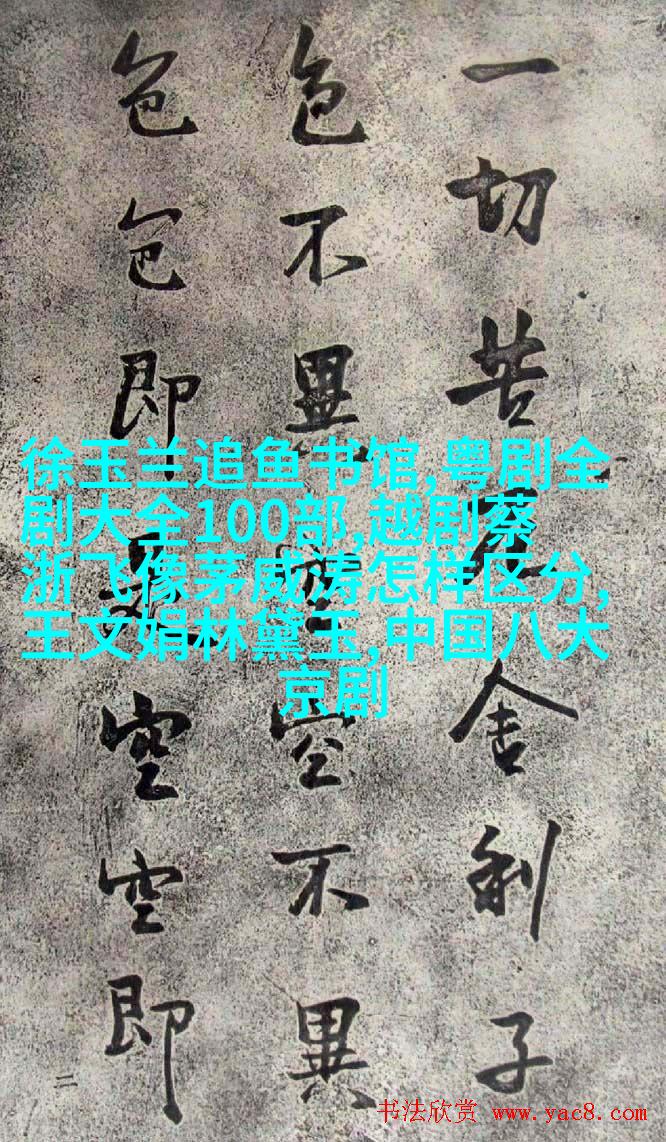 一切苦厄舍利子
色不異空空不異
色色即是空空即
二
徐玉兰追鱼书馆,粤剧全
剧大全100部,越剧蔡
浙飞像茅威涛怎样区分,
王文娟林黛玉,中国八大
京剧
书法欣赏 www.yac8.com